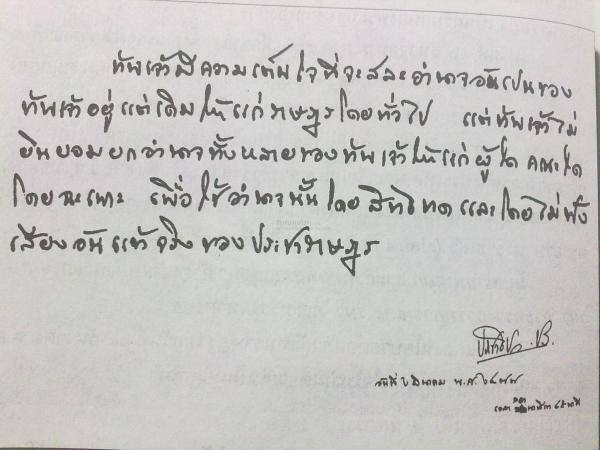 ข้าพเจ้ามีความเต็มใจที่จะสละอำนาจอันเป็นของ
ข้าพเจ้าอยู่แต่เดิมให้แก่ราษฎรโดยทั่วไป แต่ข้าพเจ้าไม่
ยินยอมยกอำนาจทั้งหลายของข้าพเจ้าให้แก่ผู้ใด คณะใด
โดยฉะเพาะ เพื่อใช้อำนาจนั้นโดยสิทธิขาดและโดยไม่ฟัง
เสียงอันแท้จริงของประชาราษฎร
วันที่ ๒ มีนาคม พ.ศ. ๒๔๗๗
เวลา นาฬิกา ๔๕ นาที